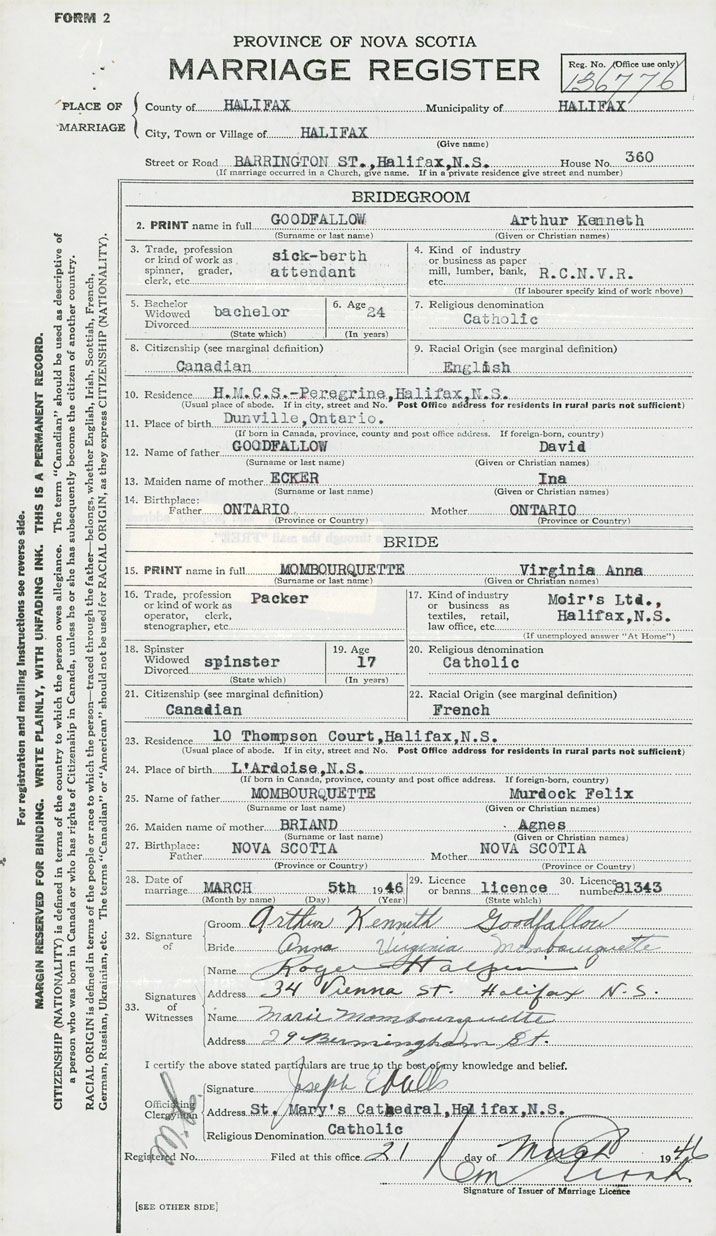 FORM 2
PROVINCE OF NOVA SCOTIA
MARRIAGE REGISTER
Reg. No. (Office use only)
136776
PLACE OF MARRIAGE
County of HALIFAX Municipality of HALIFAX
City, Town or Village of HALIFAX
(Give name)
Street or Road BARRINGTON ST.,Halifax,N.S. House No. 360
(If marriage occurred in a Church, give name. If in a private residence give street and number)
BRIDEGROOM
2. PRINT name in full GOODFALLOW Arthur Kenneth
(Surname or last name) (Given or Christian names)
3. Trade, profession or kind of work as spinner, grader, clerk, etc. sick-berth attendant
4. Kind of industry or business as paper mill, lumber, bank, etc. R.C.N.V.R.
(If labourer specify kind of work above)
5. Bachelor Widowed Divorced bachelor
(State which)
6. Age 24
(In years)
7. Religious denomination
Catholic
8. Citizenship (see marginal definition)
Canadian
9. Racial Origin (see marginal definition)
English
10. Residence H.M.C.S.-Peregrine,Halifax,N.S.
(Usual place of abode. If in city, street and No. Post Office address for residents in rural parts not sufficient)
11. Place of birth Dunville,Ontario.
(If born in Canada, province, county and post office address. If foreign-born, country)
12. Name of father GOODFALLOW David
(Surname or last name) (Given or Christian names)
13. Maiden name of mother ECKER Ina
(Surname or last name) (Given or Christian names)
14. Birthplace:
Father ONTARIO Mother ONTARIO
(Province or Country) (Province or Country)
BRIDE
15. PRINT name in full MOMBOURQUETTE Virginia Anna
(Surname or last name) (Given or Christian names)
16. Trade, profession or kind of work as operator, clerk, stenographer, etc. Packer
17. Kind of industry or business as textiles, retail, law office, etc. Moir's Ltd., Halifax,N.S.
(If unemployed answer "At Home")
18. Spinster Widowed Divorced spinster
(State which)
19. Age 17
(In years)
20. Religious denomination
Catholic
21. Citizenship (see marginal definition)
Canadian
22. Racial Origin (see marginal definition)
French
23. Residence 10 Thompson Court,Halifax,N.S.
(Usual place of abode. If in city, street and No. Post Office address for residents in rural parts not sufficient)
24. Place of birth L'Ardoise,N.S.
(If born in Canada, province, county and post office address. If foreign-born, country)
25. Name of father MOMBOURQUETTE Murdock Felix
(Surname or last name) (Given or Christian names)
26. Maiden name of mother BRIAND Agnes
(Surname or last name) (Given or Christian names)
27. Birthplace:
Father NOVA SCOTIA Mother NOVA SCOTIA
(Province or Country) (Province or Country)
28. Date of marriage MARCH 5th 1946
(Month by name) (Day) (Year)
29. Licence or banns licence
(State which)
30. Licence number 81343
32. Signature of
Groom Arthur Kenneth Goodfallow
Bride Anna Virginia Mombourquette
33. Signatures of Witnesses
Name Roger
Address 34 Vienna St. Halifax N.S.
Name Marie Mombourquette
Address 29 Bermingham St.
I certify the above stated particulars are true to the best of my knowledge and belief.
Officiating Clergyman
Signature Joseph
Address St. Mary's Cathedral,Halifax,N.S.
Religious Denomination Catholic
Registered No. Filed at this office 21 day of March 1946
Signature of Issuer of Marriage Licence
[SEE OTHER SIDE]
For registration and mailing instructions see reverse side.
MARGIN RESERVED FOR BINDING. WRITE PLAINLY, WITH UNFADING INK. THIS IS A PERMANENT RECORD.
CITIZENSHIP (NATIONALITY) is defined in terms of the country to which the person owes allegiance. The term "Canadian" should be used as descriptive of
a person who was born in Canada or who has rights of Citizenship in Canada, unless he or she has subsequently become the citizen of another country.
RACIAL ORIGIN is defined in terms of the people or race to which the person—traced through the father—belongs, whether English, Irish, Scottish, French,
German, Russian, Ukrainian, etc. The terms "Canadian" or "American" should not be used for RACIAL ORIGIN, as they express CITIZENSHIP (NATIONALITY).